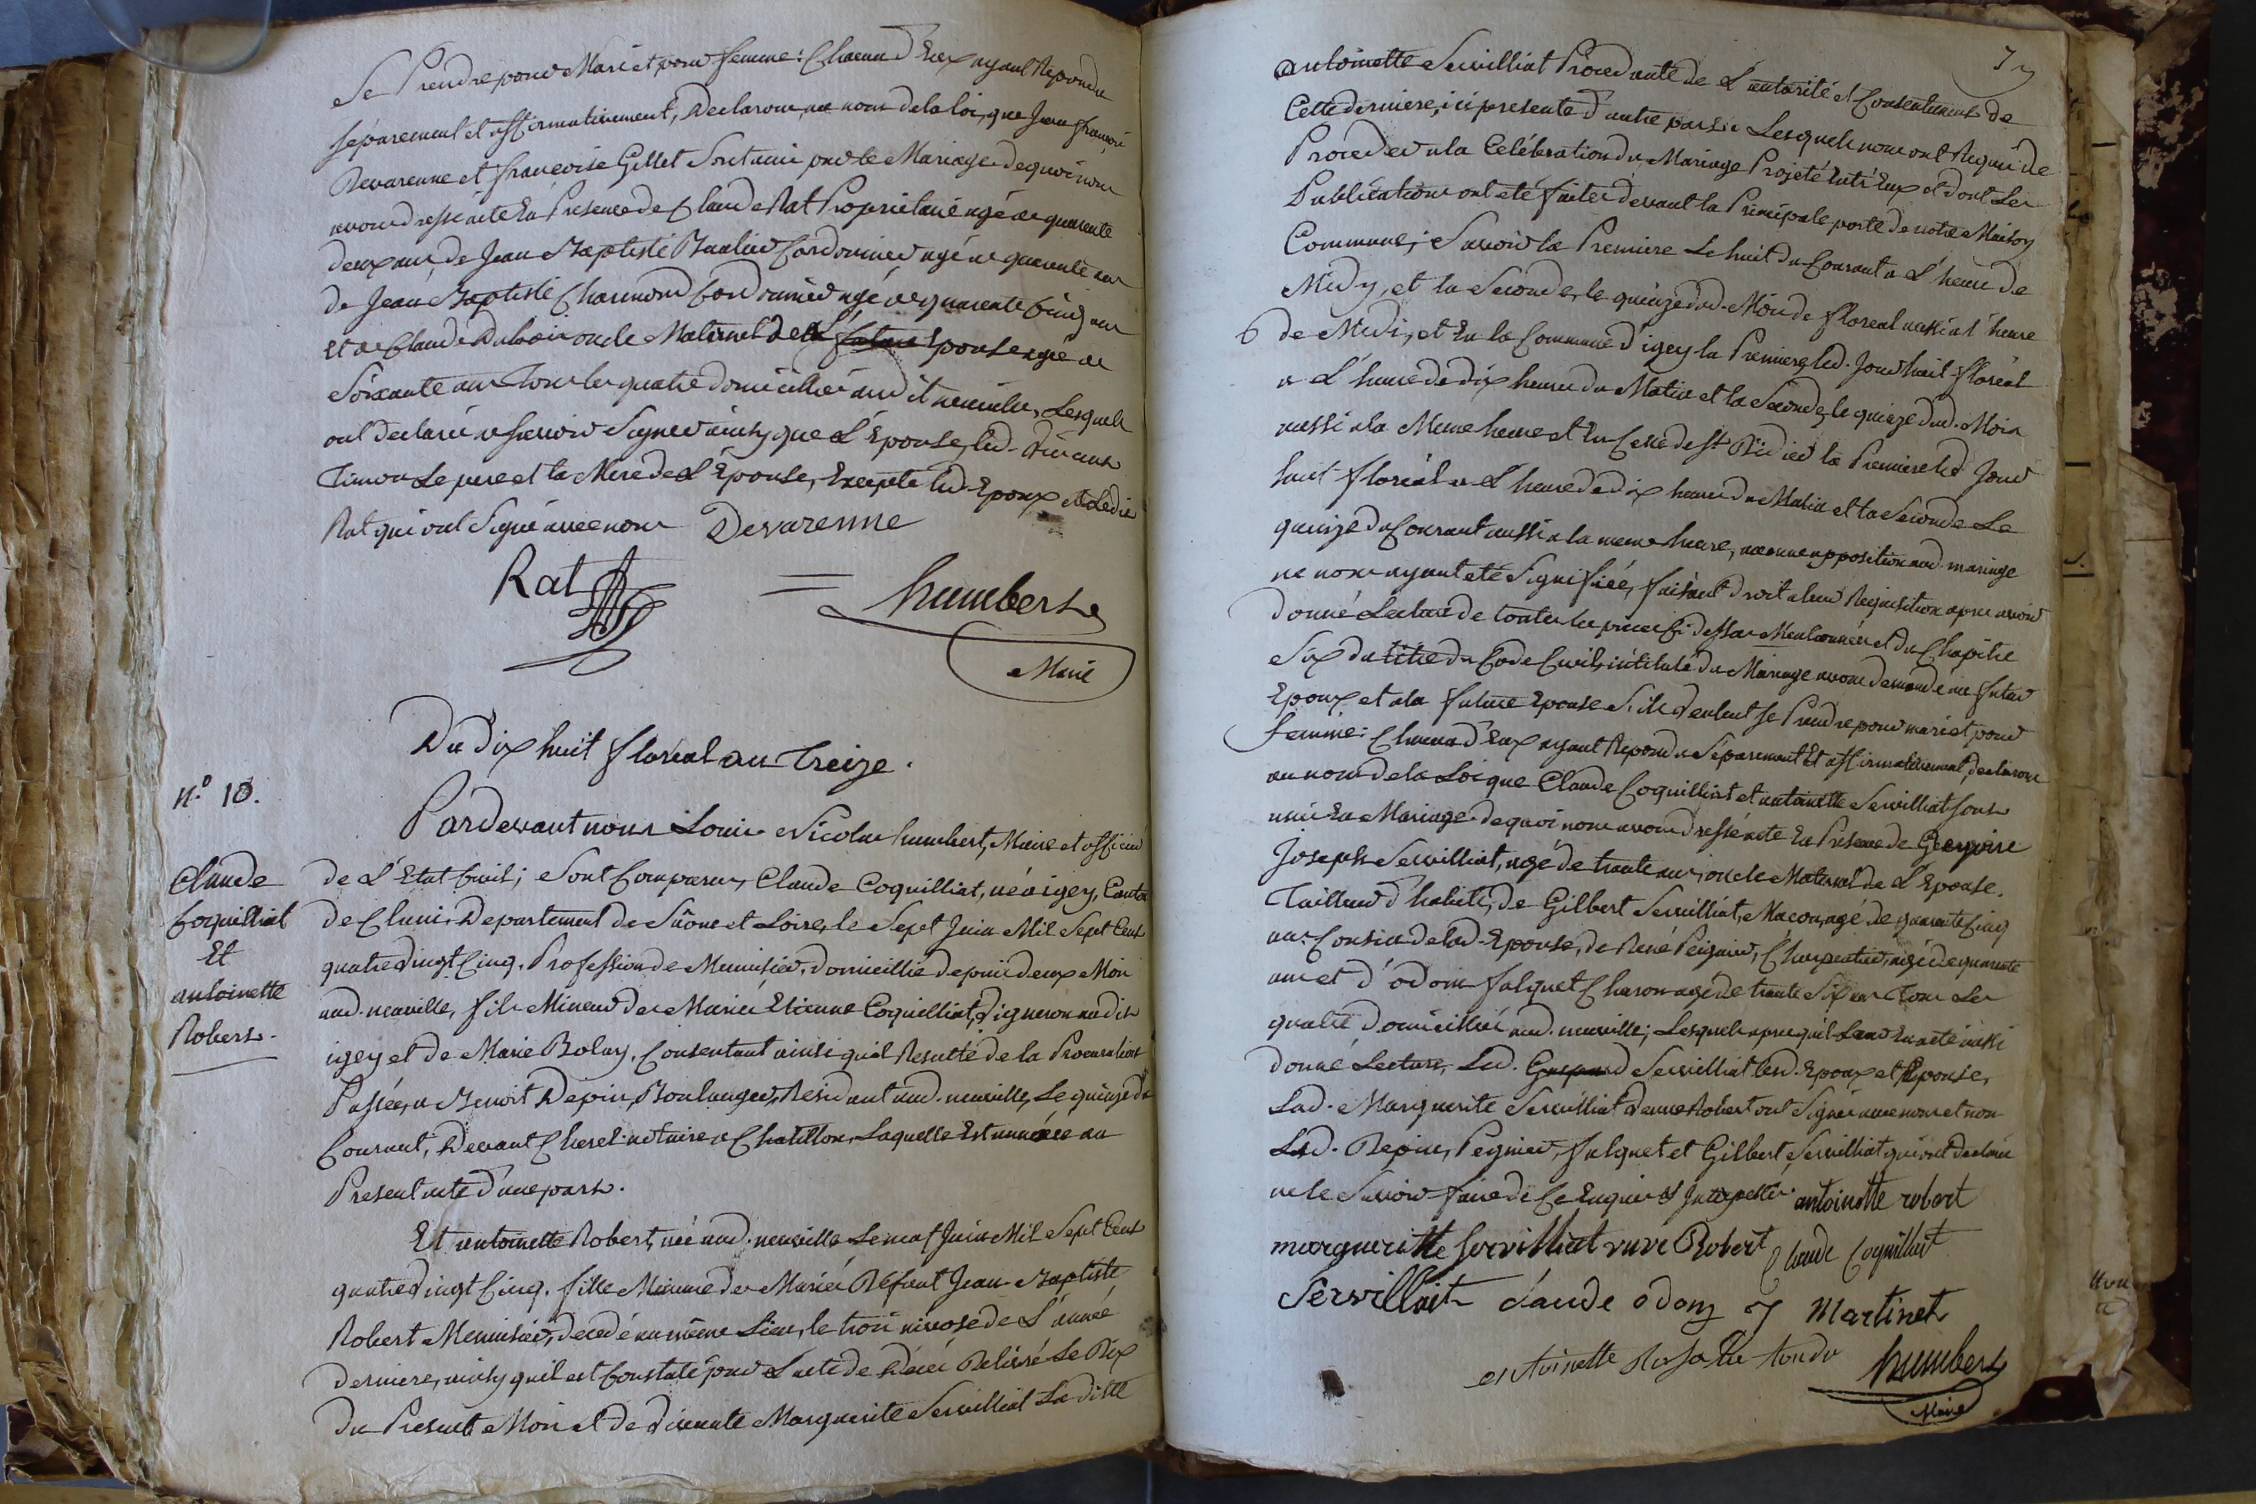 Se Prendre pour Mari et pour femme: Chacun d'Eux ayant Repondu
séparement et affirmativement, Declarons, au nom de la loi, que Jean françois
Devarenne et françoise Gillet Sont unis par le Mariage de quoi nous
avons dressé acte En Presence de Claude Rat Proprietaire agé de quarente
deux ans, de Jean Baptiste Cordonnier agé de quarente ans
de Jean Baptiste Charmond Cordonnier agé de quarente Cinq ans
et de Claude Dubois oncle Maternel de L' future Epouse agé de
Soixante ans Tous les quatre domiciliés aud it neuville, Lesquels
ont declaré ne Savoir Signer ainsy que L'Epouse, lad. Vivant
Timon Le pere et la Mere de L'Epouse, Excepté led. Epoux et Ledit
Rat qui ont Signé avec nous Devarenne
Rat humbert
Maire
Du dix huit floreal an Treize.
n.º 10.
Pardevant nous Louis Nicolas humbert, Maire et officier
Claude
Coquilliat
Et
antoinette
Robert.
de L'Etat Civil; Sont Comparus, Claude Coquilliat, né a igey, Canton
de Cluni, Departement de Saône et Loire, le Sept Juin Mil Sept Cent
quatre Vingt Cinq, Profession de Menuisier, domicillié depuis deux Mois
aud. neuville, fils Mineur de Mariés Etienne Coquilliat, Vigneron au dit
igey et de Marie Bolay, Consentant ainsi qu'il Resulte de la Procuration
Passée, a Benoit Depin, Boulanger, Residant aud. neuville, Le quinze du
Courant, Devant Cherel notaire a Chatillon, Laquelle Est annexée au
Present acte d'une part.
Et antoinette Robert, née aud. neuville Le neuf Juin Mil Sept Cent
quatre Vingt Cinq, fille Mineure de Mariés Défunt Jean Baptiste
Robert Menuisier, decedé au même Lieu, le trois nivose de L'année
derniere, ainsy qu'il est Constaté par L'acte de Décés Delivré Le Dix
du Present Mois et de Vivante Marguerite Servilliat La ditte
7
antoinette Servilliat Procedante de L'autorité et Consentement de
Cette derniere, ici presente d'autre part: Lesquels nous ont Requis de
Proceder a la Celébration du Mariage Projeté Entr'Eux et dont Les
Publications ont eté faites devant la Principale porte de notre Maison
Commune; Savoir la Premiere Le huit du Courant a L'heure de
Midy, et la Seconde, le quinze dud. Mois de floreal aussi a l'heure
de Midi, et En la Commune d'igey la Premiere led. Jour huit floréal
a L'heure de dix heures du Matin et la Seconde, le quinze dud. Mois
aussi a la Meme heure et En Celle de St. Didier la Premiere led. Jour
huit floréal a L'heure de dix heures du Matin et la Seconde Le
quinze du Courant aussi a la meme heure, aucune opposition aud. mariage
ne nous ayant eté Signifiée, faisant droit a leur Requisition apres avoir
donné Lecture de toutes les pieces Ci dessus Mentionnées et du Chapitre
Six du titre du Code Civil, intitulé du Mariage avons demandé au futur
Epoux et a la future Epouse S'ils Veulent Se Prendre pour mari et pour
femme: Chacun d'Eux ayant Repondu Séparement Et affirmativement, declarons
au nom de la Loi que Claude Coquilliat et antoinette Servilliat Sont
unis En Mariage de quoi nous avons dressé acte En Presence de
Joseph Servilliat, agé de trente ans, oncle Maternel de L'Epouse.
Tailleur d'habits, de Gilbert Servilliat, Macon, agé de quarente Cinq
ans Cousin de lad. Epouse, de René Peignier, Charpentier, agé de quarente
ans et d'odom falquet Charon agé de trente Six ans Tous Les
quatre domicilliés aud. neuville; Lesquels apres qu'il Leur En a été aussi
donné Lecture, Led. Servilliat Lesd. Epoux et Epouse,
Lad. Marguerite Servilliat Veuve Robert ont Signé avec nous et non
Lesd. Depin, Pegnier, falquet et Gilbert Servilliat qui ont declaré
ne le Savoir faire de Ce Enquis et Interpellés. antoinette robert
margueritte Servilliat vuve Robert Claude Coquilliat
Servilliat claude odom J Martinet
antoinette humbert
Maire